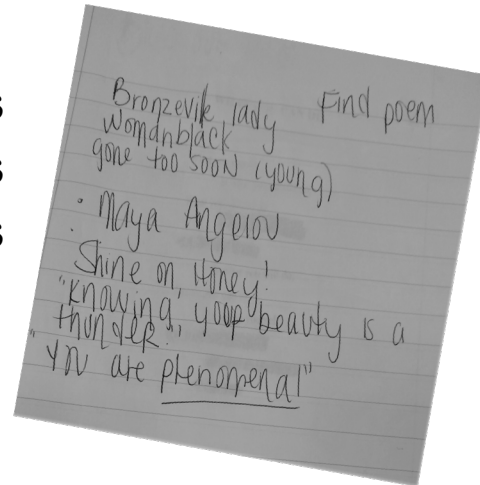 Bronzeville lady Find poem
womanblack
gone too soon (young)
• Maya Angelou
Shine on, Honey!
"Knowing your beauty is a
thunder."
"You are phenomenal"